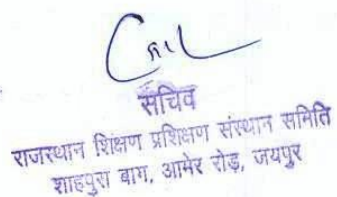 सचिव
राजस्थान शिक्षण प्रशिक्षण संस्थान समिति
शाहपुरा बाग, आमेर रोड़, जयपुर